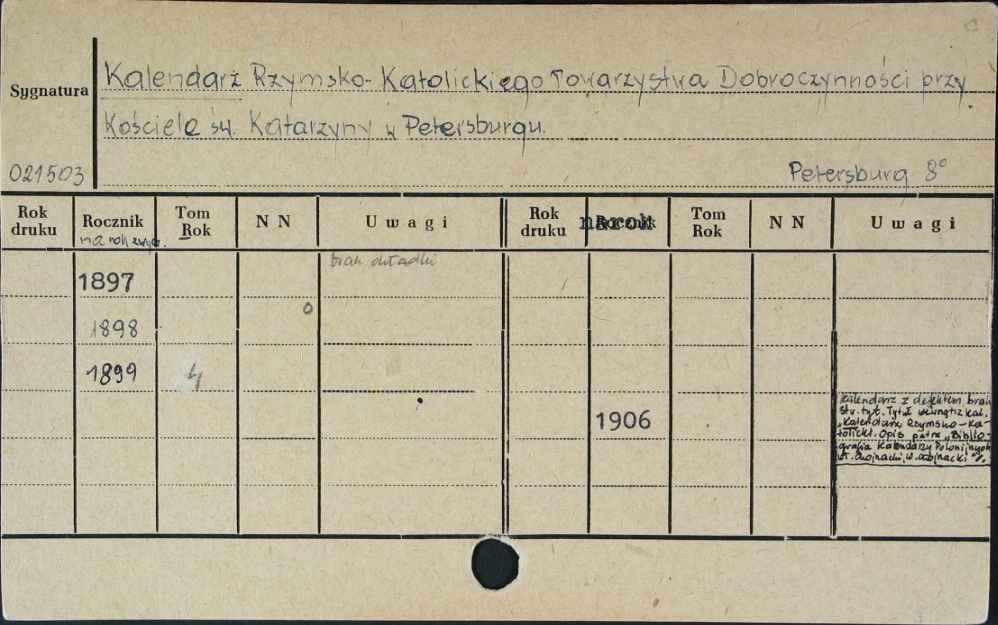 Kalendarz Rzymsko-Katolickiego Towarzystwa Dobroczynności przy
Sygnatura
Kościele św. Katarzyny w Petersburgu.
021503
Petersburg 8°
Rok druku Rocznik Tom Rok NN Uwagi Rok druku na rok Tom Rok NN Uwagi
na rok
brak okładki
1897
1898
1899 4
1906
Kalendarz z defektem brak
str. tyt. Tytuł wewnątrz kal.
"Kalendarz Rzymsko-Ka-
tolicki. Opis patrz "Biblio-
grafia Kalendarzy Polonijnych
W. Chojnacki, W. Chojnacki